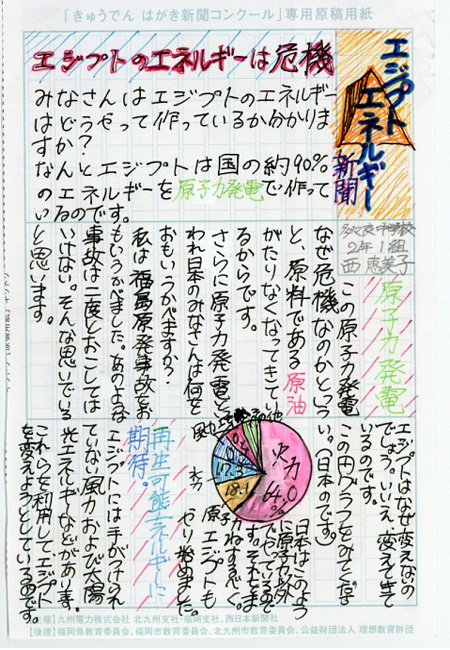 「きゅうでん はがき新聞コンクール」専用原稿用紙
エジプトのエネルギーは危機
エジプト
エネルギー
新聞
みなさんはエジプトのエネルギー
はどうやって作っているか分かりま
すか？
なんとエジプトは国の約90%
のエネルギーを原子力発電で作って
いるのです。
中学校
2年1組
西 恵美子
原子力発電
この原子力発電
なぜ危機なのかという
と、原料である原油
がたりなくなってきてい
るからです。
さらに原子力発電と
われ日本のみなさんは何を
おもいうかべますか？
私は福島原発事故をお
もいうかべました。あのような
事故は二度とおこしては
いけない。そんな思いでいる
と思います。
エジプトはなぜ変えないの
でしょう。いいえ、変えてきて
いるのです。
この円グラフをみてください
。（日本のです。）
火力
64.0
%
18.1
水力
風力
その他
日本はこのよう
に原子力以外
にたらよっているので
す。それだ
原子力ねすべく。
エジプトも
やり始めました。
再生可能エネルギーに
期待。
エジプトには手がつけられ
ていない風力および太陽
光エネルギーなどがあります。
これらを利用してエジプト
を変えようとしているのです。
【主催】九州電力株式会社 北九州支社・福岡支社、西日本新聞社
【後援】福岡県教育委員会、福岡市教育委員会、北九州市教育委員会、公益財団法人 理想教育財団